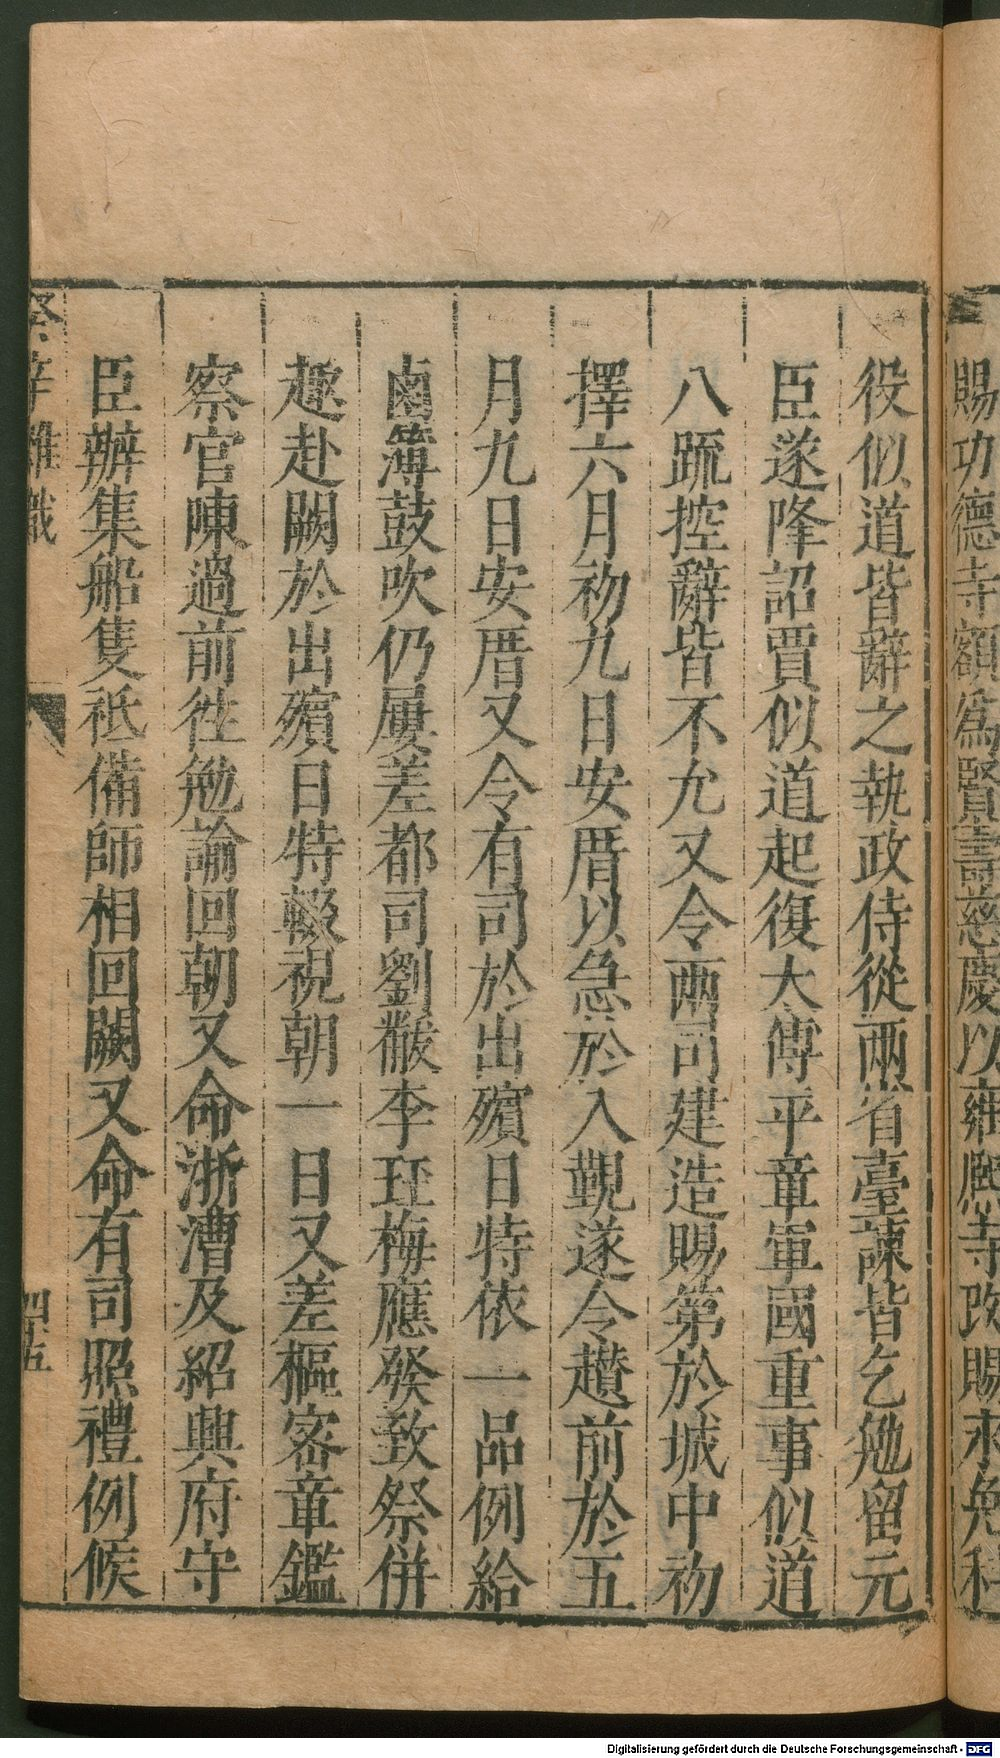 賜功德寺額爲賢壽慈慶以雍熙寺改賜永免科
役似道皆辭之執政侍從兩省臺諫皆乞勉留元
臣遂降詔賈似道起復太傅平章軍國重事似道
八疏控辭皆不允又令兩司建造賜第於城中初
擇六月初九日安厝以急於入覲遂令趲前於五
月九日安厝又令有司於出殯日特依一品例給
鹵簿鼓吹仍屢差都司劉黻李珏梅應發致祭併
趣赴闕於出殯日特輟視朝一日又差樞密章鑑
察官陳過前徃勉諭回朝又命浙漕及紹興府守
臣辦集船隻祗備師相回闕又命有司照禮例候
癸辛雜識
四五
Digitalisierung gefördert durch die Deutsche Forschungsgemeinschaft - DFG